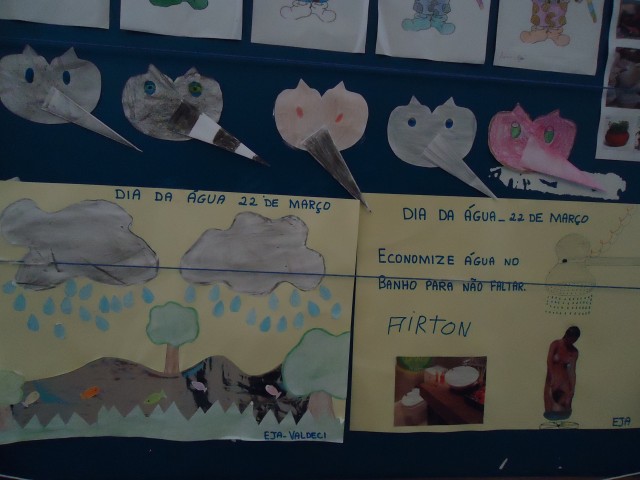 DIA DA ÁGUA 22 DE MARÇO
EJA-VALDECI
DIA DA ÁGUA_22 DE MARÇO
ECONOMIZE ÁGUA NO
BANHO PARA NÃO FALTAR.
AIRTON
EJA